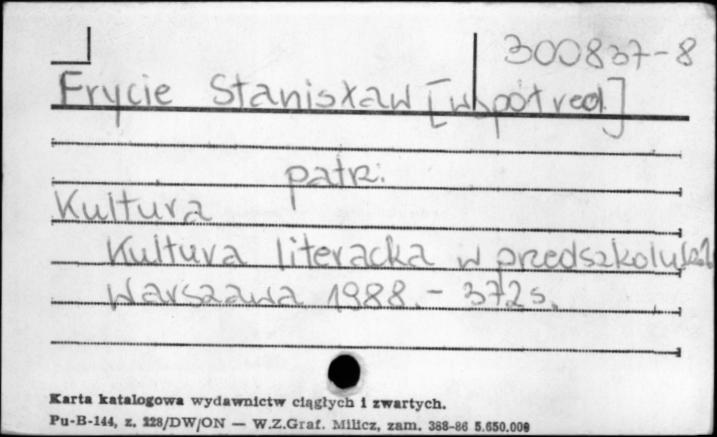 300837-8
Frycie Stanisław [współred.]
patrz:
Kultura
Kultura literacka w przedszkolu
Warszawa 1988.- 372 s.
Karta katalogowa wydawnictw ciągłych i zwartych.
Pu-B-144, z. 228/DW/ON — W.Z.Graf. Milicz, zam. 388-86 5.650.000